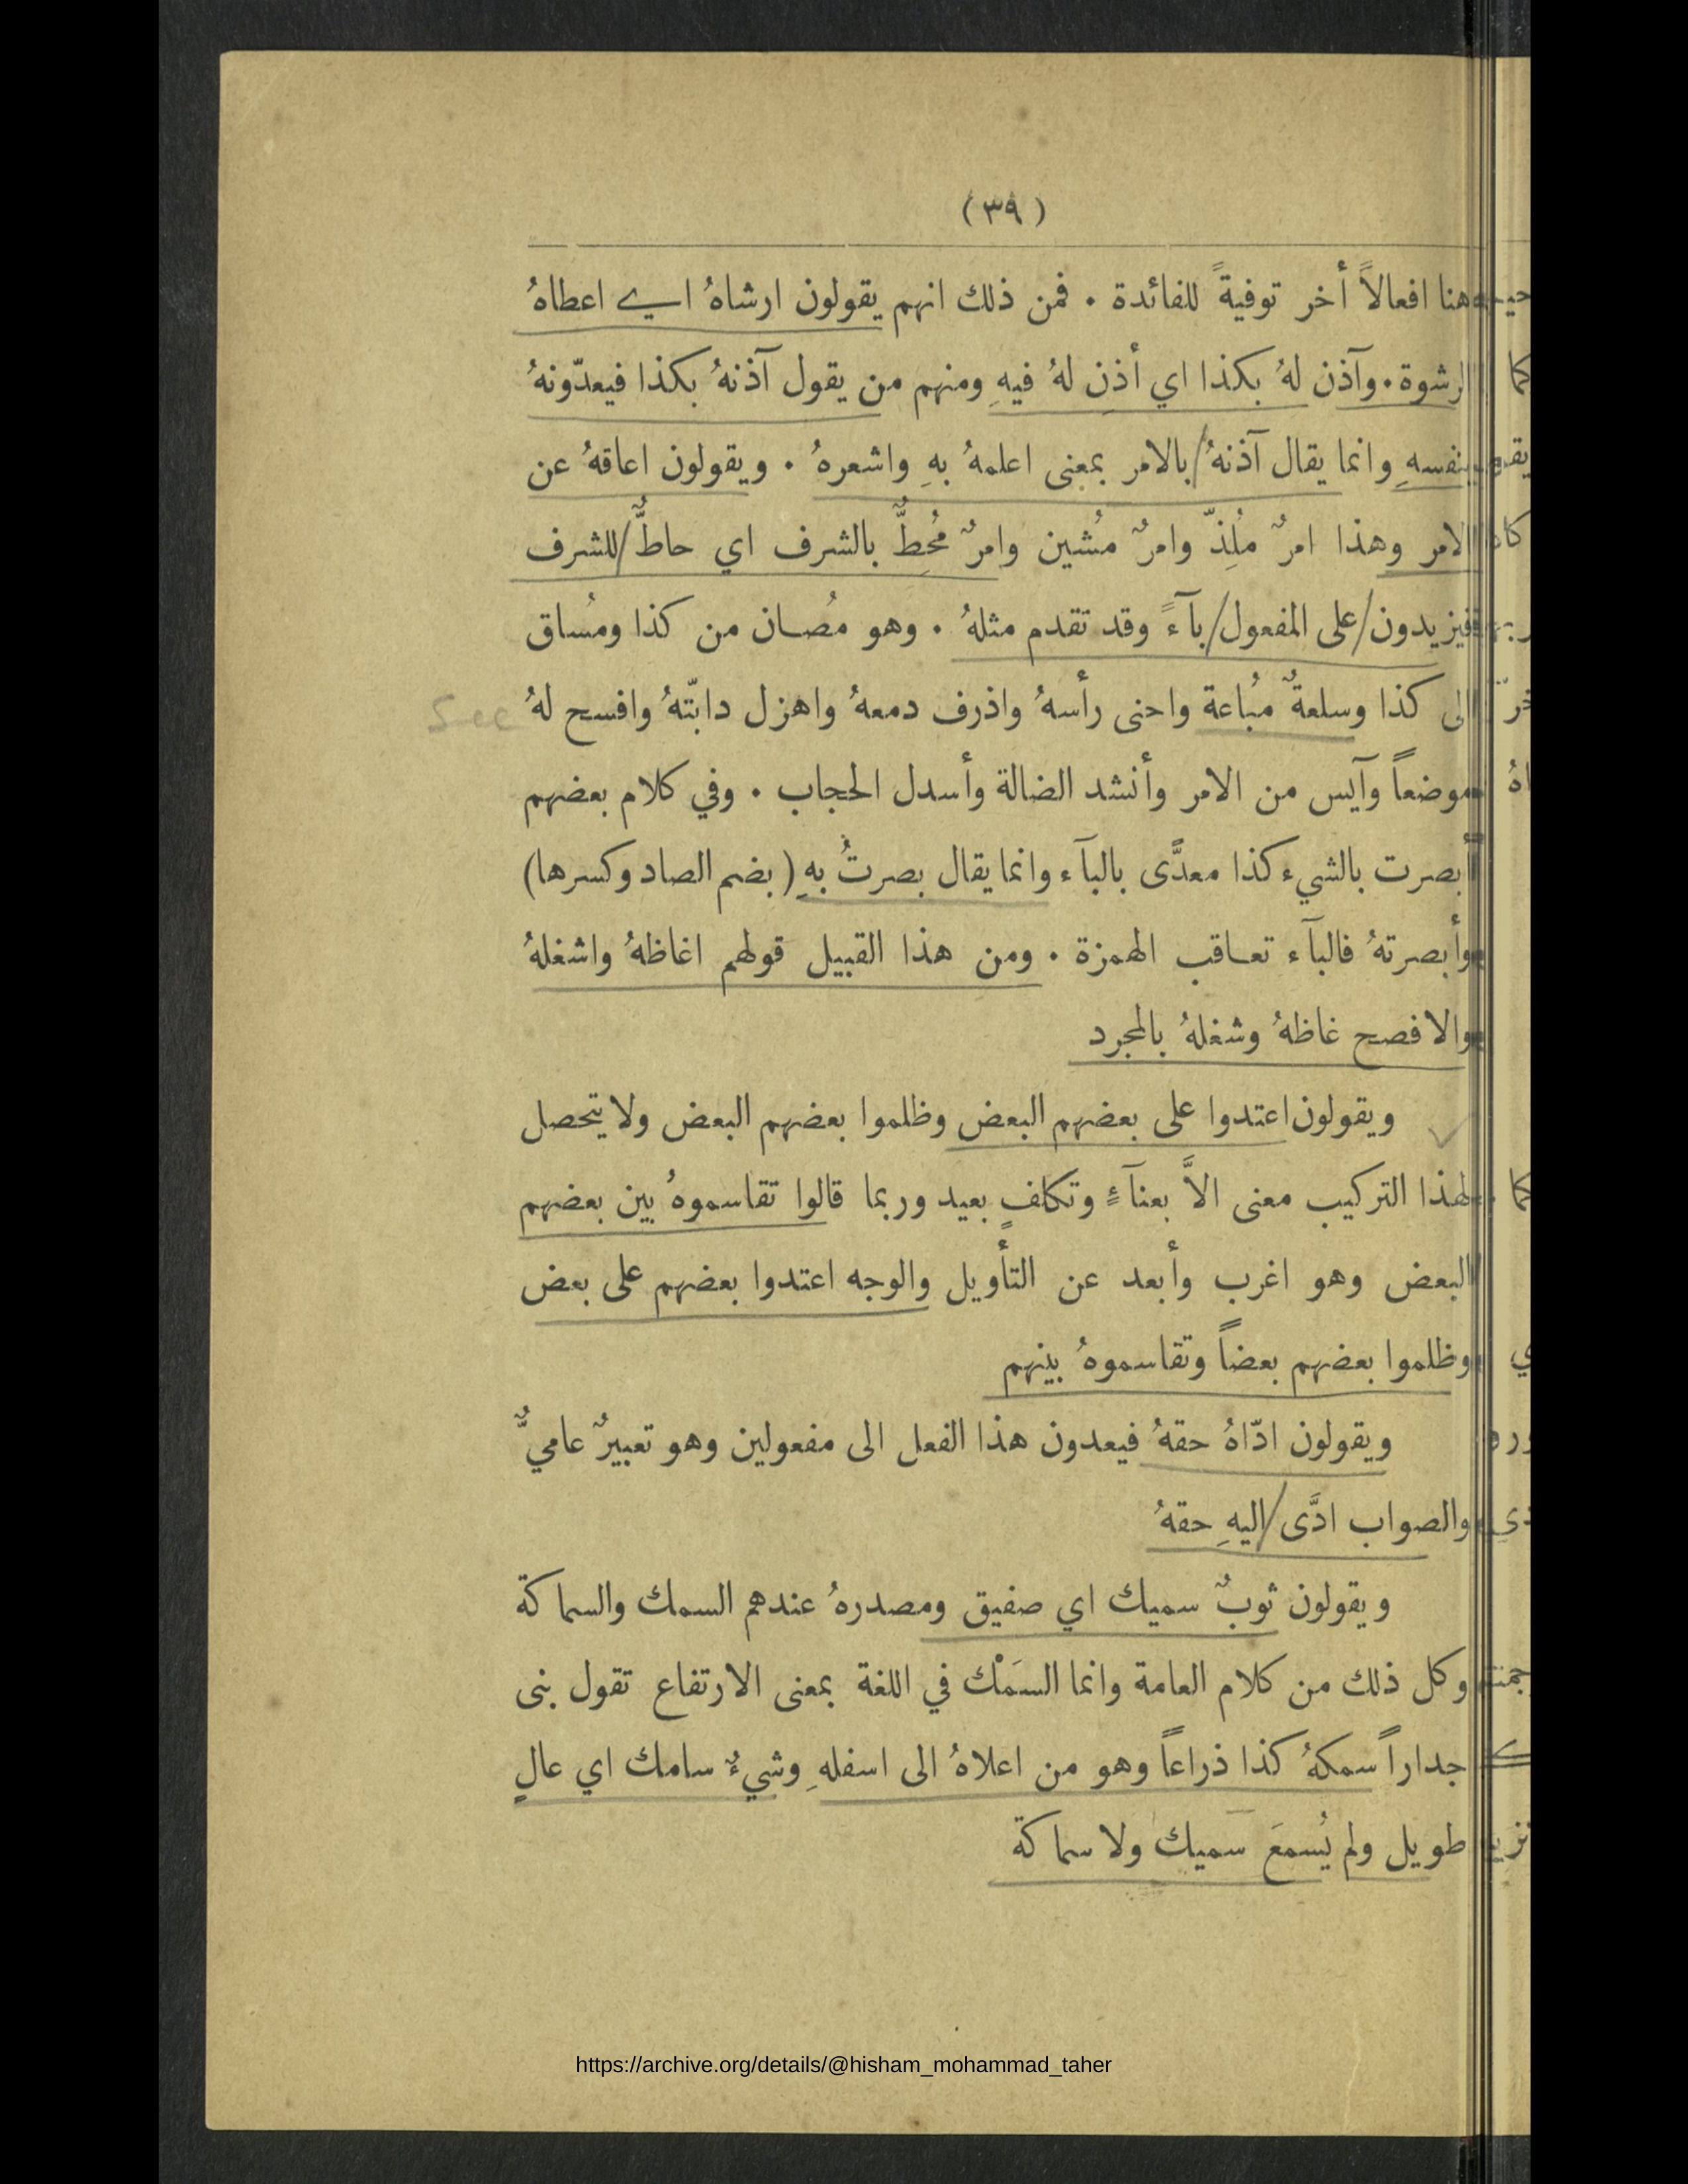 (٣٩)
هنا افعالاً أخر توفيةً للفائدة . فمن ذلك انهم يقولون ارشاهُ اي اعطاهُ
الرشوة . وآذن لهُ بكذا اي أذن لهُ فيهِ ومنهم من يقول آذنهُ بكذا فيعدّونهُ
بنفسهِ وانما يقال آذنهُ بالامر بمعنى اعلمهُ بهِ واشعرهُ . ويقولون اعاقهُ عن
الامر وهذا امرٌ مُلِذّ وامرٌ مُشين وامرٌ مُحِطٌّ بالشرف اي حاطٌّ للشرف
فيزيدون على المفعول بآءً وقد تقدم مثلهُ . وهو مُصان من كذا ومُساق
الى كذا وسلعةٌ مُباعة واحنى رأسهُ واذرف دمعهُ واهزل دابّتهُ وافسح لهُ
See
موضعاً وآيس من الامر وأنشد الضالة وأسدل الحجاب . وفي كلام بعضهم
أبصرت بالشيء كذا معدًّى بالبآء وانما يقال بصرتُ بهِ (بضم الصاد وكسرها)
وأبصرتهُ فالبآء تعاقب الهمزة . ومن هذا القبيل قولهم اغاظهُ واشغلهُ
والافصح غاظهُ وشغلهُ بالمجرد
ويقولون اعتدوا على بعضهم البعض وظلموا بعضهم البعض ولا يتحصل
لهذا التركيب معنى الاَّ بعنآءٍ وتكلفٍ بعيد وربما قالوا تقاسموهُ بين بعضهم
البعض وهو اغرب وأبعد عن التأويل والوجه اعتدوا بعضهم على بعض
وظلموا بعضهم بعضاً وتقاسموهُ بينهم
ويقولون ادّاهُ حقهُ فيعدون هذا الفعل الى مفعولين وهو تعبيرٌ عاميٌّ
والصواب ادَّى اليهِ حقهُ
ويقولون ثوبٌ سميك اي صفيق ومصدرهُ عندهم السمك والسماكة
وكل ذلك من كلام العامة وانما السَمْك في اللغة بمعنى الارتفاع تقول بنى
جداراً سمكهُ كذا ذراعاً وهو من اعلاهُ الى اسفلهِ وشيءٌ سامك اي عالٍ
طويل ولم يُسمعَ سميك ولا سماكة
https://archive.org/details/@hisham_mohammad_taher